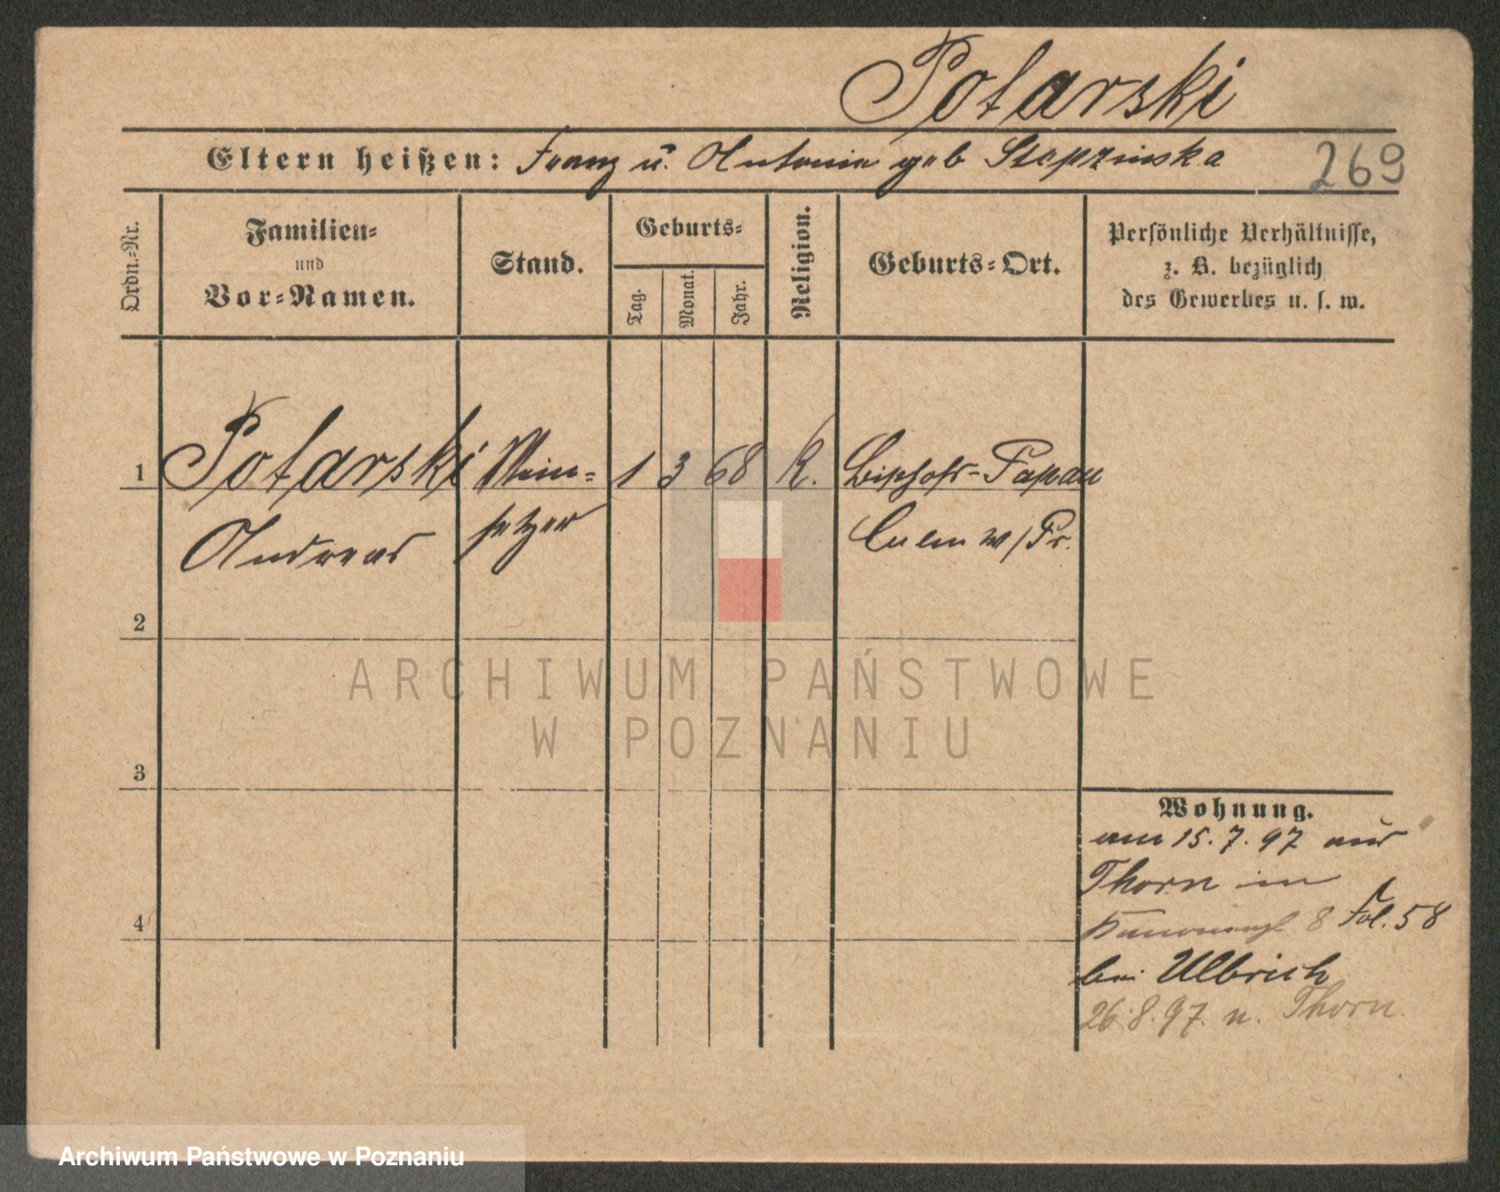 Potarski
Eltern heißen: Franz u. Antonie geb Stepzinska
269
Ordn.-Nr.
Familien-
und
Vor-Namen.
Stand.
Geburts-
Tag.
Monat.
Jahr.
Religion.
Geburts-Ort.
Persönliche Verhältnisse,
z. B. bezüglich
des Gewerbes u. s. w.
1 Potarski 1 3 68 K. Bischofs-Papau
Andreas setzer Culm w/Pr.
2
ARCHIWUM PAŃSTWOWE
W POZNANIU
3
Wohnung.
am 15.7.97 aus
Thorn in
8 Fol. 58
bei Ulbrich
4
26.8.97. n. Thorn.
Archiwum Państwowe w Poznaniu